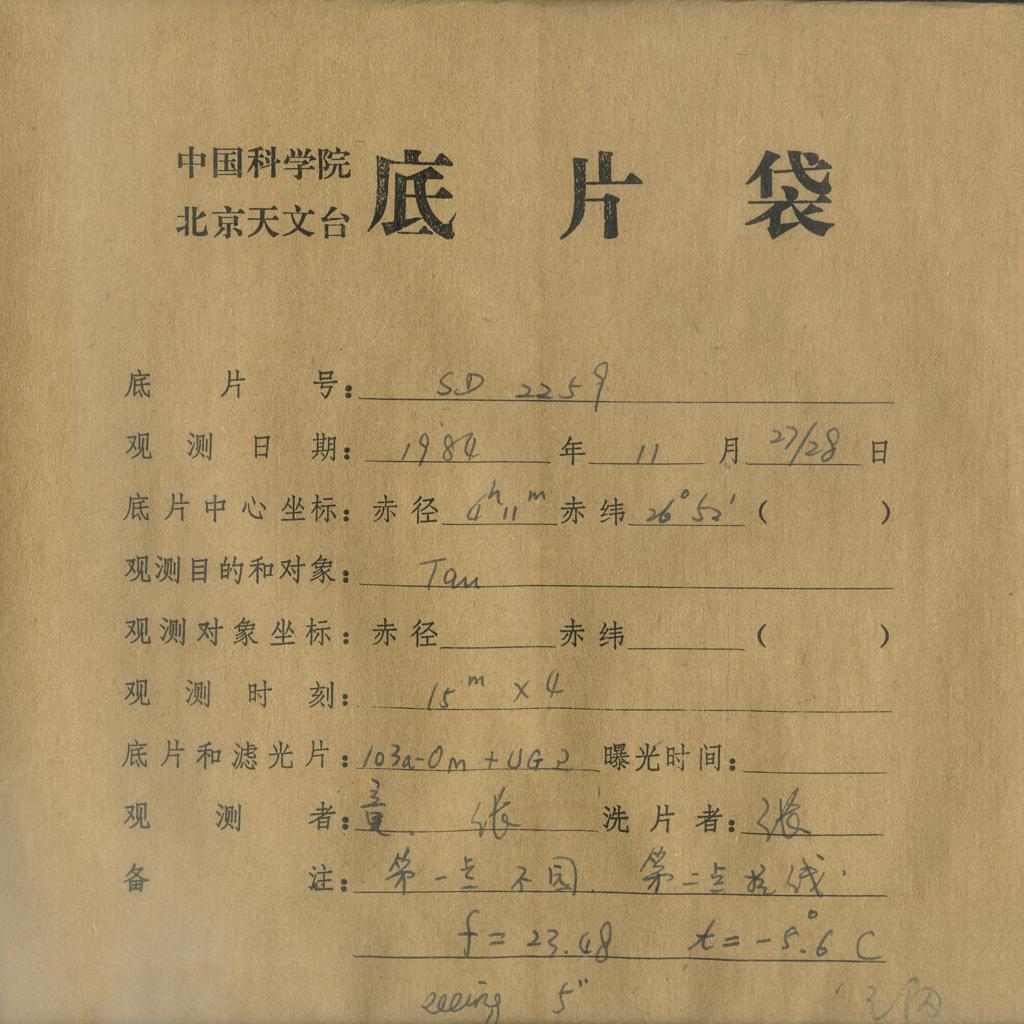 中国科学院
北京天文台
底片袋
底片号: SD 2259
观测日期: 1984 年 11 月 27/28 日
底片中心坐标: 赤径 4ʰ11ᵐ 赤纬 26°52′ ( )
观测目的和对象: Tau
观测对象坐标: 赤径 赤纬 ( )
观测时刻: 15ᵐ × 4
底片和滤光片: 103a-Om + UG2 曝光时间:
观测者: 童. 张 洗片者: 张
备注: 第一点不园. 第二点拉线.
f = 23.48 t = -5.°6 C
seeing 5″